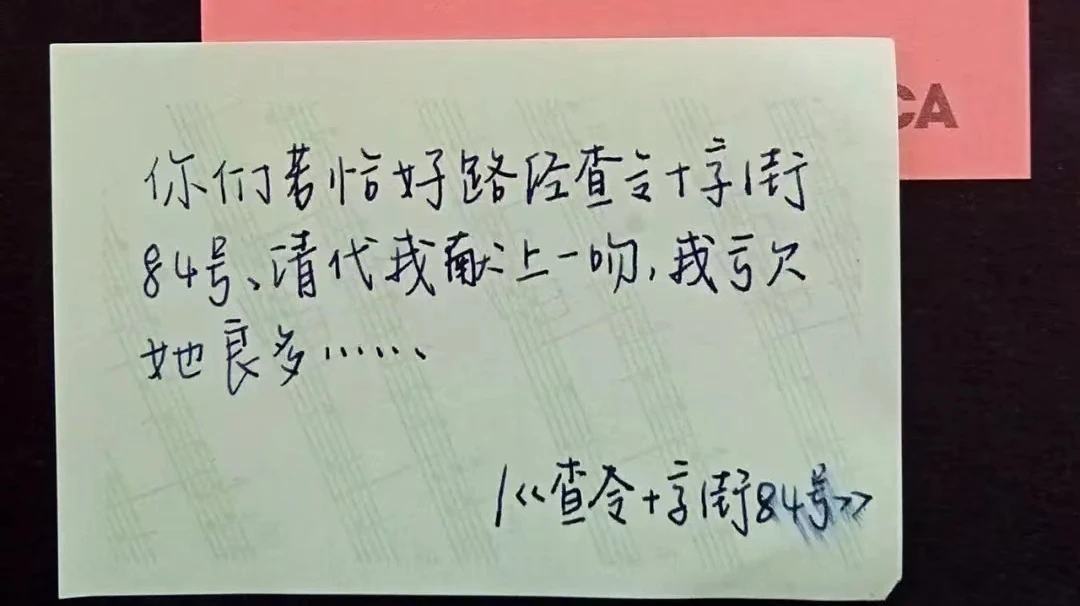 CA
你们若恰好路经查令十字街
84号、请代我献上一吻,我亏欠
她良多……
/《查令十字街84号》